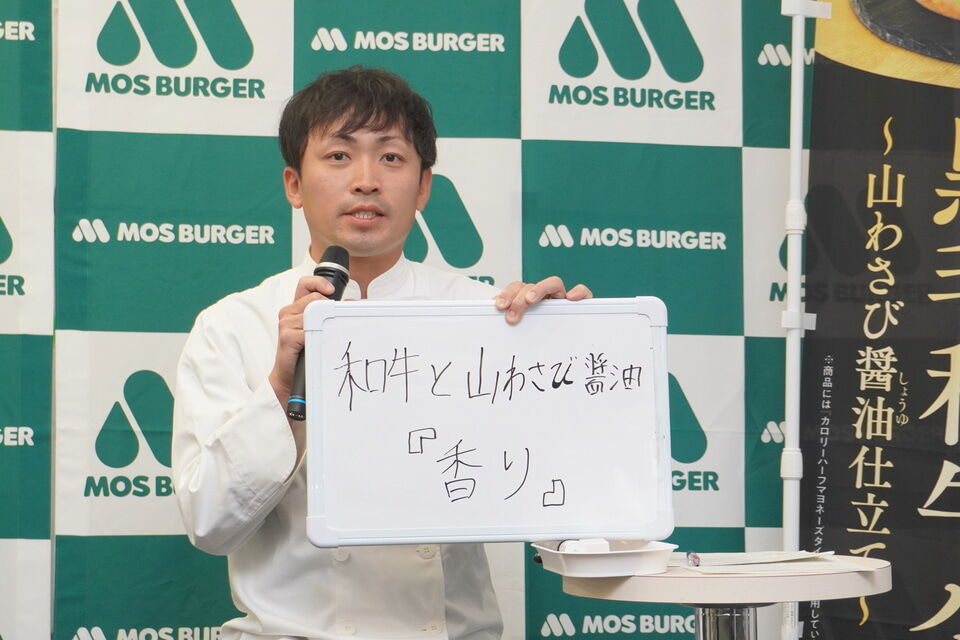 MOS BURGER
MOS BURGER
MOS BURGER
MOS BURGER
MOS BURGER
MOS BURGER
和牛と山わさび醤油
『香り』
MOS B
MOS BURGER
MOS BURGER
黒毛和牛
～山わさび醤油仕立て～
しょうゆ
※商品には「カロリーハーフマヨネーズタイ
用してい